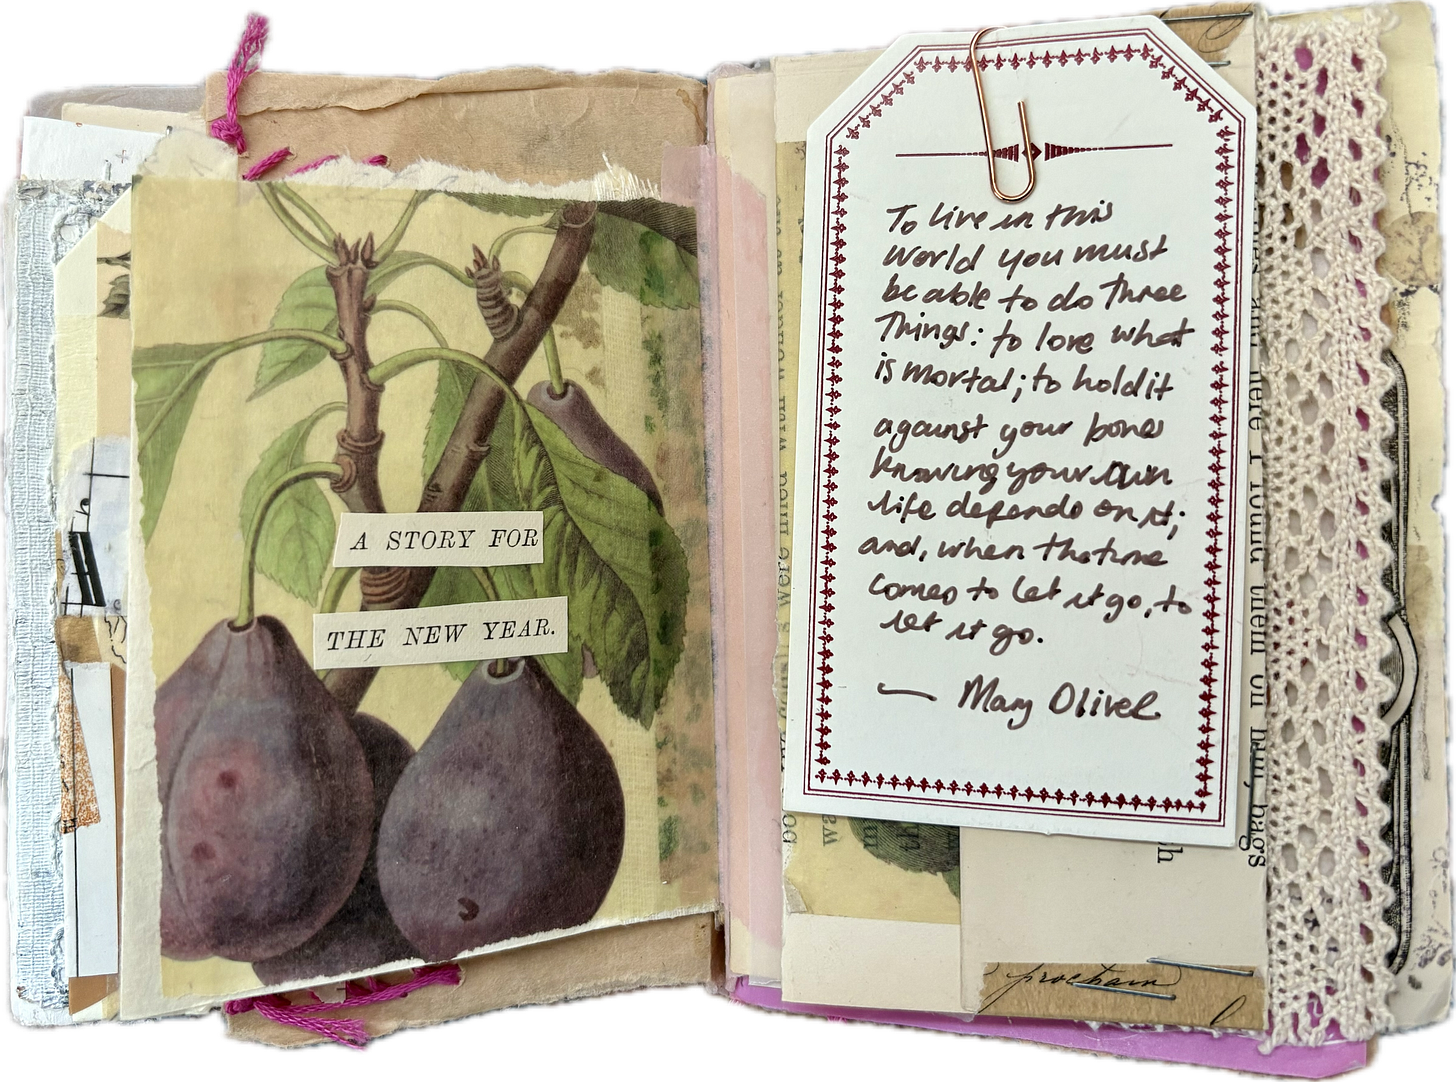 A STORY FOR
THE NEW YEAR.
To live in this
world you must
be able to do three
Things: to love what
is mortal; to hold it
against your bones
knowing your own
life depends on it;
and, when the time
comes to let it go, to
let it go.
— Mary Oliver
were filled with wonder
here I found them on
prochain